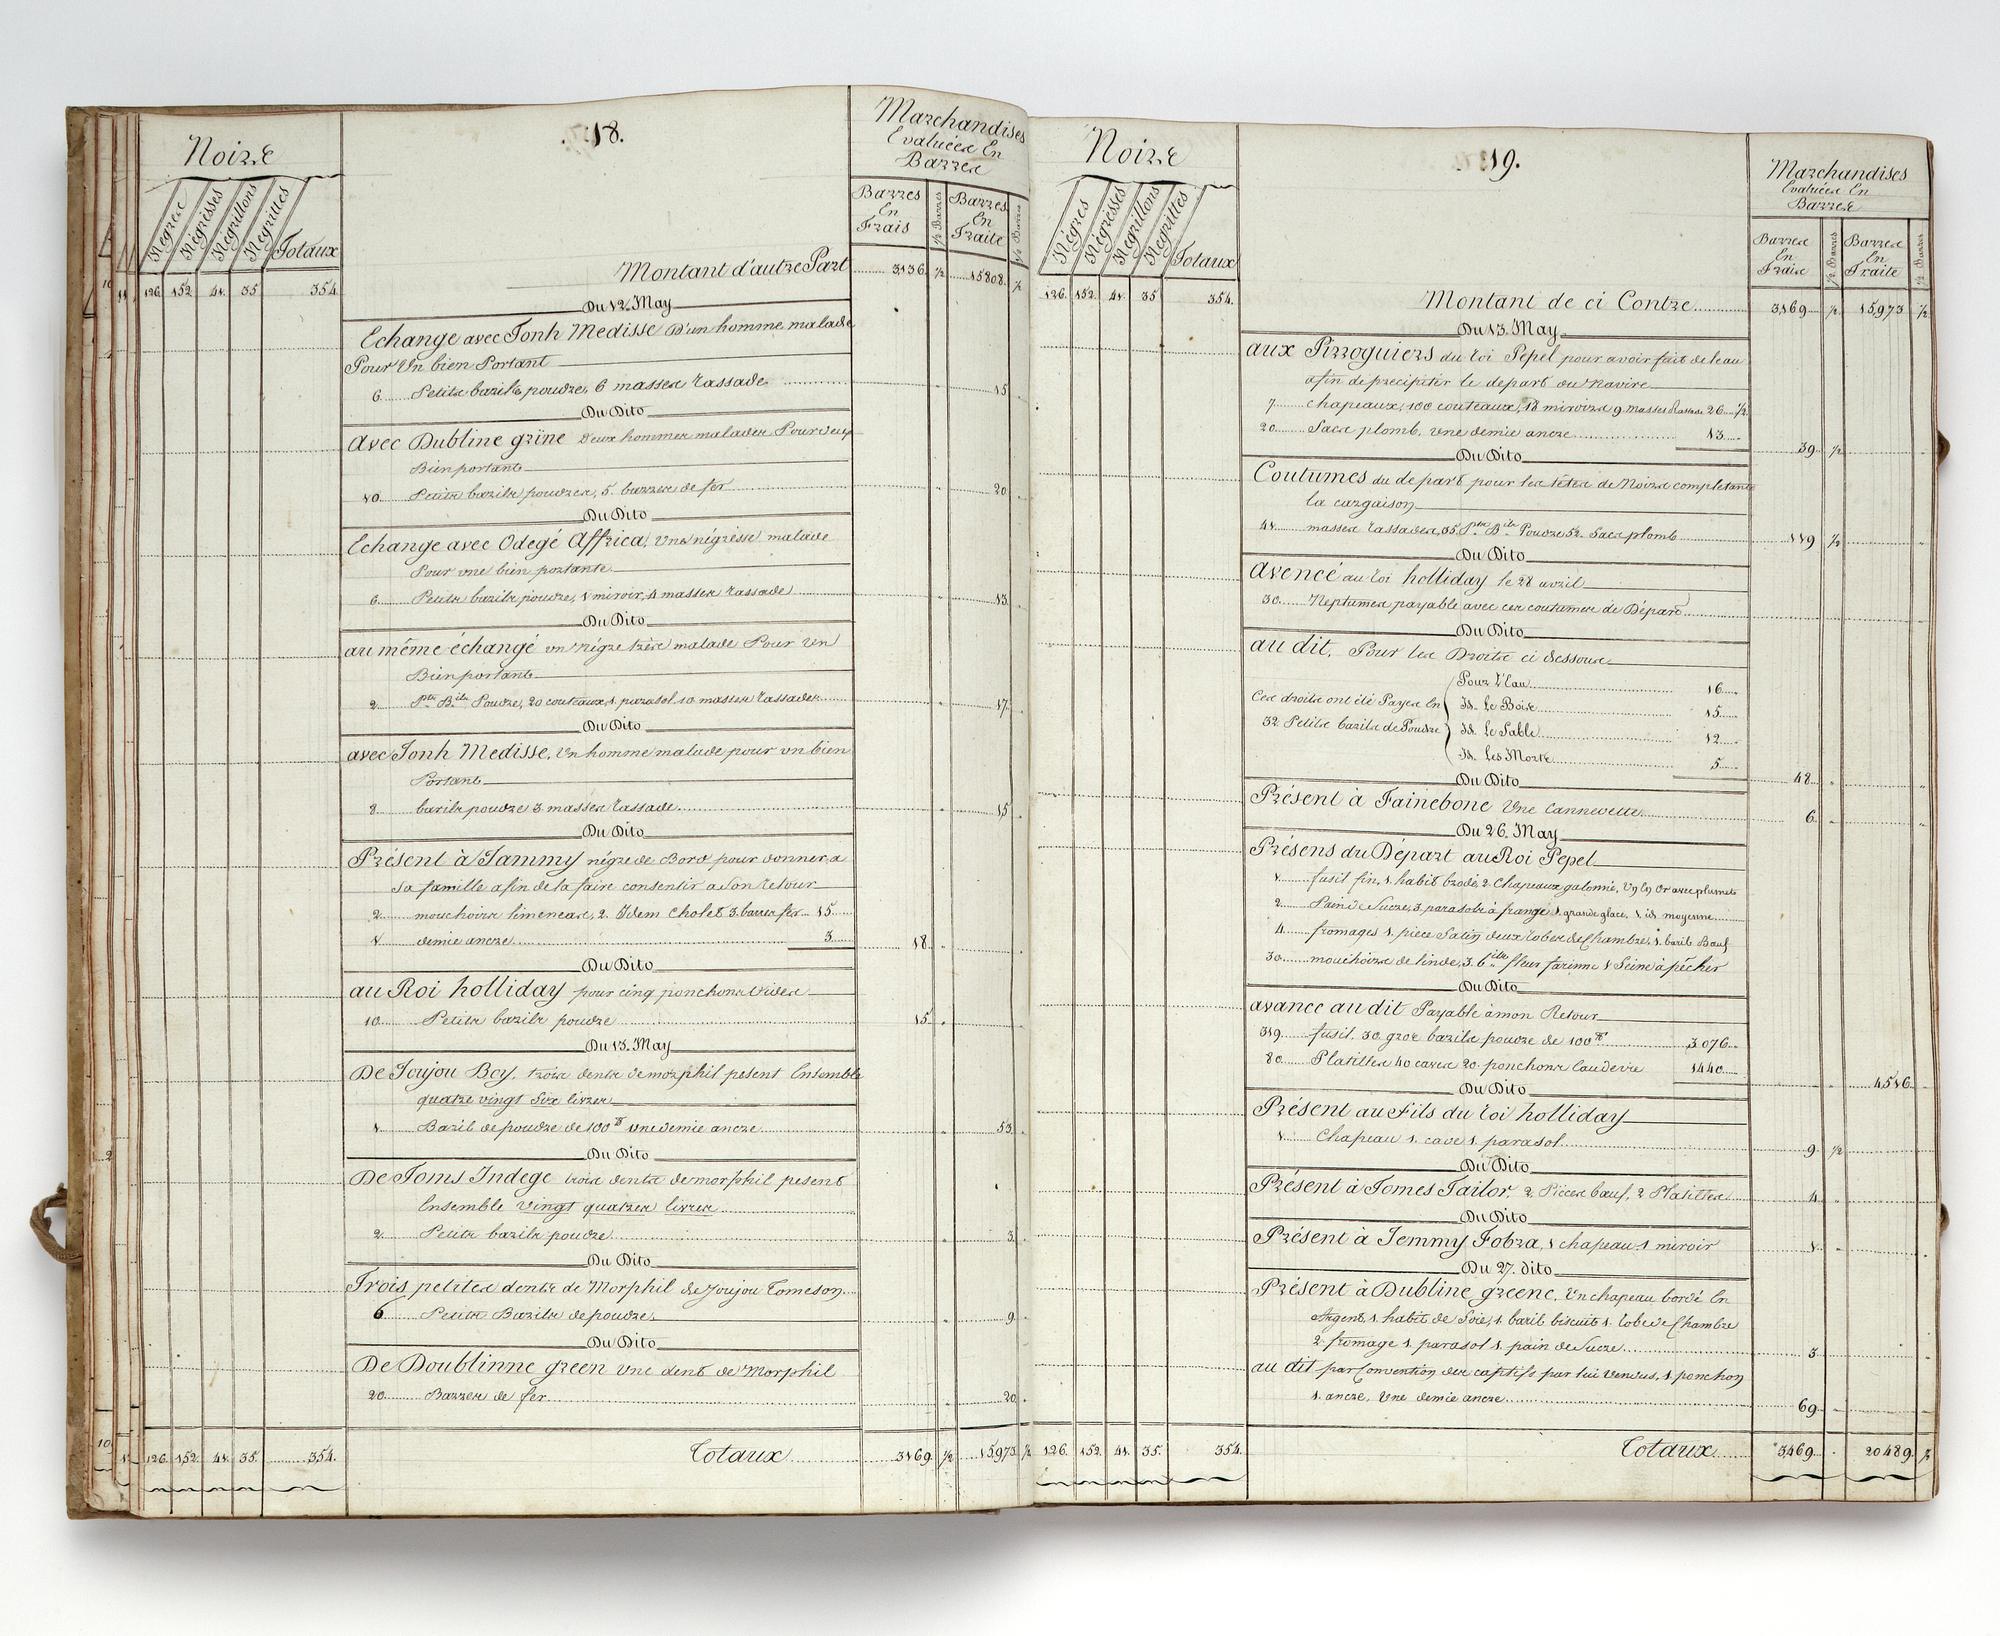 18.
Noirs
Négres
Négresses
Négrillons
Négrittes
Totaux
Marchandises
Evaluées En
Barres
Barres En Fraix
1/2 Barres
Barres En Traite
1/2 Barres
126. 152. 41. 35. 354. Montant d'autre Part 3136. 1/2 15808. 1/2
Du 12. May
Echange avec Jonh Medisse D'un homme malade
Pour Un bien Portant
6 Petits barils poudre, 6 masses rassade 15
Du Dito
Avec Dubline grine deux hommes malades Pour deux
Bien portants
10 Petits barils poudres, 5. barres de fer 20
Du Dito
Echange avec Odegé Affrica, Une négresse malade
Pour une bien portante
6 Petits barils poudre, 1 miroir, 4 masses rassade 13
Du Dito
au même échangé un négre très malade Pour Un
Bien portant
2 Pts Bils Poudre, 20 couteaux, 1. parasol 10 masses rassades 17
Du Dito
avec Jonh Medisse, Un homme malade pour un bien
Portant
8 barils poudre 3 masses rassade 15
Du Dito
Présent à Jammy négre de Bord pour donner a
sa famille afin de la faire consentir a son retour
2 mouchoirs limeneas, 2. Idem Cholet 3. barres fer 15
1 demie ancre 3 18
Du Dito
au Roi holliday pour cinq ponchons Vides
10 Petits barils poudre 15
Du 13. May
De Joujou Boy, trois dents de morphil pesent Ensemble
quatre vingt Six livres
1 Baril de poudre de 100 tt une demie ancre 53
Du Dito
De Toms Indege trois dents de morphil pesent
Ensemble vingt quatres livres
2 Petits barils poudre 3
Du Dito
Trois petites dents de Morphil de Joujou Tomeson
6 Petits Barils de poudre 9
Du Dito
De Doublinne green Une dent de Morphil
20 Barres de fer 20
126. 152. 41. 35. 354. Totaux 3169. 1/2 15973. 1/2
19.
Noirs
Négres
Négresses
Négrillons
Négrittes
Totaux
Marchandises
Evaluées En
Barres
Barres En Fraix
1/2 Barres
Barres En Traite
1/2 Barres
126. 152. 41. 35. 354. Montant de ci Contre 3169 1/2 15973 1/2
Du 13. May
aux Pirroguiers du roi Pepel pour avoir fait de l'eau
afin de precipiter le depart du Navire
7 chapeaux, 100 couteaux, 18 miroirs 9. masses Rassade 26 1/2
20 Sacs plomb, une demie ancre 13 39 1/2
Du Dito
Coutumes du depart pour les têtes de Noirs completant
la cargaison
41 masses rassades, 35 Pts Bils Poudre 52 Sacs plomb 119 1/2
Du Dito
avencé au roi holliday le 28 avril
30 Neptumes payable avec ces coutumes de Départ
Du Dito
au dit, Pour les Droits ci dessous
Ces droits ont été Payes En
32 Petits barils de Poudre
Pour L'Eau 16
Id. Le Bois 15
Id. Le Sable 12
Id. Les Morts 5 48
Du Dito
Présent à Fainebone Une Cannevette 6
Du 26. May
Présens du Départ au Roi Pepel
1 fusil fin, 1. habit brodé, 2. Chapeaux galonné, Un En Or avec plumets
2 Pain de Sucre, 3 parasols à frange 1. grande glace, 1 id. moyenne
4 fromages 1. piece Satin deux robes de Chambre, 1. baril Bœuf
30 mouchoirs de linde, 3. fleur farinne 1 Seine à pêcher
Du Dito
avance au dit Payable à mon Retour
319 fusil. 30 gros barils poudre de 100 tt 3076
80 Platilles 40 caves 20. ponchons Eau de vie 1440 4516
Du Dito
Présent au fils du roi holliday
1 Chapeau 1. cave 1. parasol 9 1/2
Du Dito
Présent à Tomes Tailor, 2 Pièces bœuf, 2 Platilles 4
Du Dito
Présent à Jemmy Fobra, 1 chapeau 1 miroir 1
Du 27. dito
Présent à Dubline greene, Un chapeau bordé En
Argent, 1. habit de Soie, 1 baril biscuits 1. robe de Chambre
2 fromage 1. parasol 1. pain de Sucre 3
au dit par Convention des captifs par lui Vendus, 1. ponchon
1. ancre, Une demie ancre 69
126. 152. 41. 35. 354. Totaux 3469. 20489. 1/2